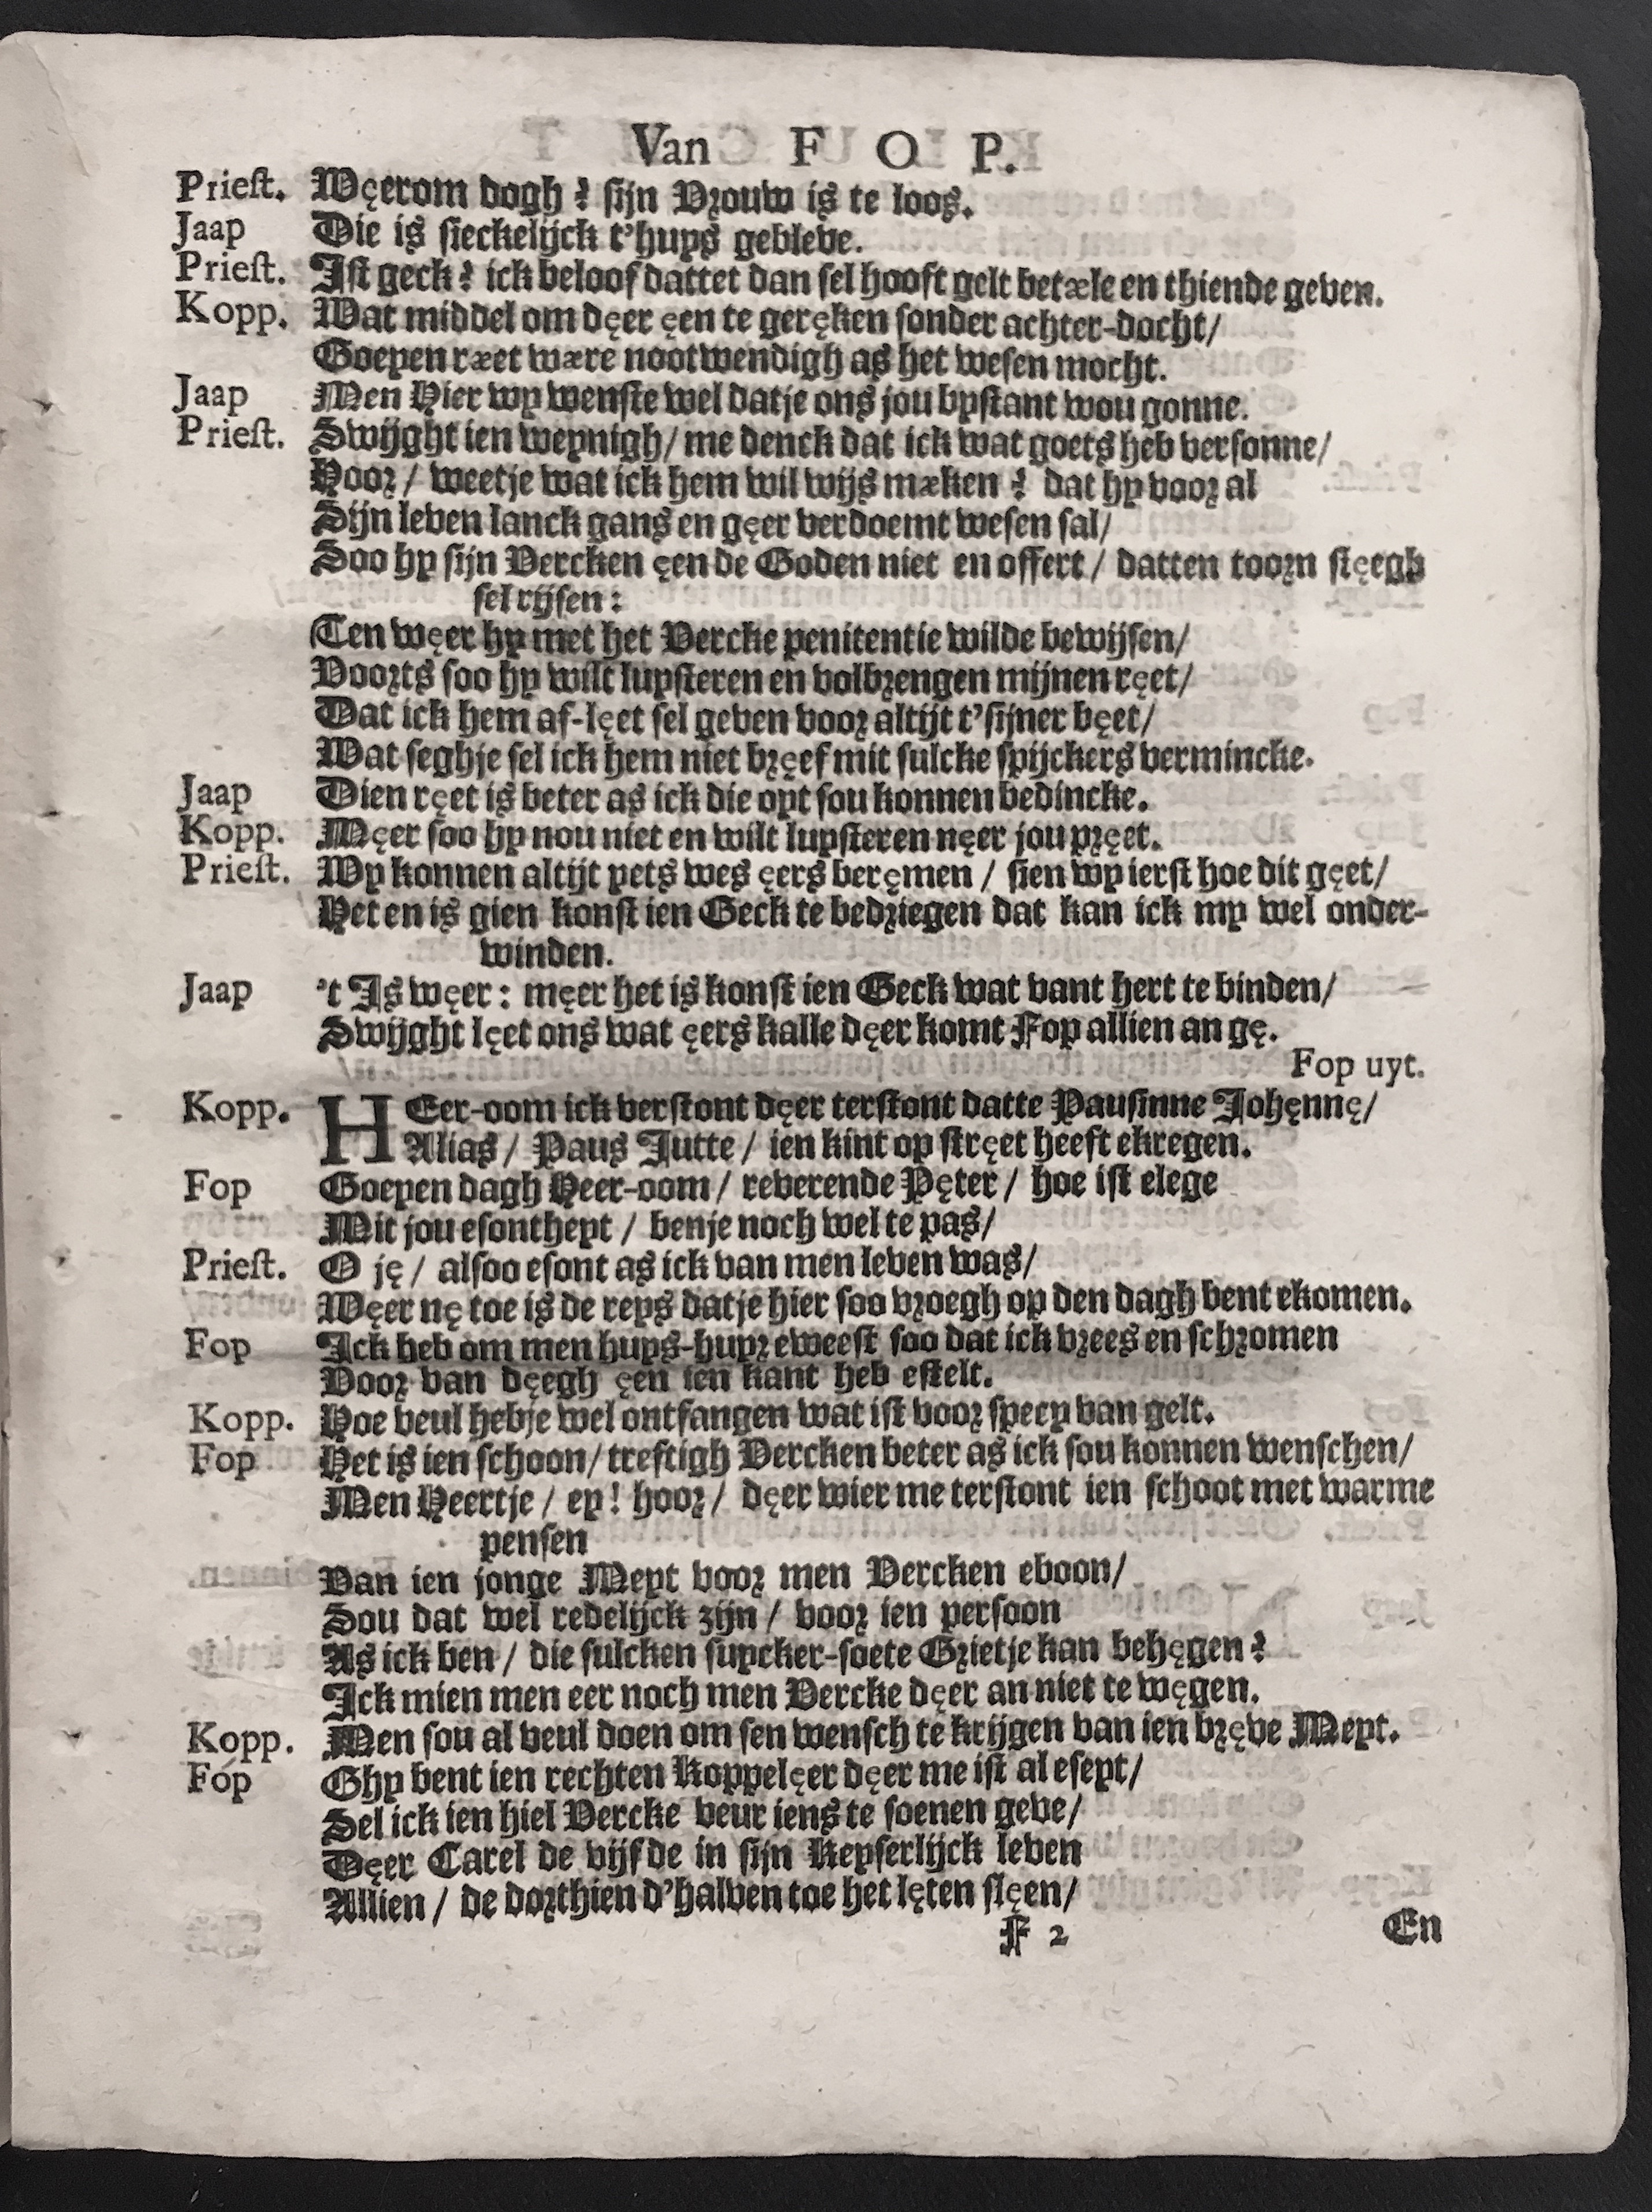 Van F O P.
Priest. Węerom dogh? sijn Vrouw is te loos.
Jaap Die is sieckelijck t'huys gebleve.
Priest. Ist geck? ick beloof dattet dan sel hooft gelt betæle en thiende geven.
Kopp. Wat middel om dęer ęen te geręken sonder achter-docht/
Goeyen ræet wære nootwendigh as het wesen mocht.
Jaap Men Hier wy wenste wel datje ons jou bystant wou gonne.
Priest. Swijght ien weynigh/ me denck dat ick wat goets heb versonne/
Hoor/ weetje wat ick hem wil wijs mæken? dat hy voor al
Sijn leven lanck gans en gęer verdoemt wesen sal/
Soo hy sijn Vercken ęen de Goden niet en offert/ datten toorn stęegh
sel rijsen:
Ten węer hy met het Vercke penitentie wilde bewijsen/
Voorts soo hy wilt luysteren en volbrengen mijnen ręet/
Dat ick hem af-lęet sel geven voor altijt t'sijner bęet/
Wat seghje sel ick hem niet bręef mit sulcke spijckers vermincke.
Jaap Dien ręet is beter as ick die oyt sou konnen bedincke.
Kopp. Męer soo hy nou niet en wilt luysteren nęer jou pręet.
Priest. Wy konnen altijt yets wes ęers beręmen/ sien wy ierst hoe dit gęet/
Het en is gien konst ien Geck te bedriegen dat kan ick my wel onder-
winden.
Jaap 't Is węer: męer het is konst ien Geck wat vant hert te binden/
Swijght lęet ons wat ęers kalle dęer komt Fop allien an gę.
Fop uyt.
Kopp. HEer-oom ick verstont dęer terstont datte Pausinne Johęnnę/
Alias/ Paus Jutte/ ien kint op stręet heeft ekregen.
Fop Goeyen dagh Heer-oom/ reverende Pęter/ hoe ist elege
Mit jou esontheyt/ benje noch wel te pas/
Priest. O ję/ alsoo esont as ick van men leven was/
Węer nę toe is de reys datje hier soo vroegh op den dagh bent ekomen.
Fop Ick heb om men huys-huyr eweest soo dat ick vrees en schromen
Voor van dęegh ęen ien kant heb estelt.
Kopp. Hoe veul hebje wel ontfangen wat ist voor specy van gelt.
Fop Het is ien schoon/ treftigh Vercken beter as ick sou konnen wenschen/
Men Heertje/ ey! hoor/ dęer wier me terstont ien schoot met warme
pensen
Van ien jonge Meyt voor men Vercken eboon/
Sou dat wel redelijck zijn/ voor ien persoon
As ick ben/ die sulcken suycker-soete Grietje kan behęgen?
Ick mien men eer noch men Vercke dęer an niet te węgen.
Kopp. Men sou al veul doen om sen wensch te krijgen van ien bręve Meyt.
Fop Ghy bent ien rechten Koppelęer dęer me ist al eseyt/
Sel ick ien hiel Vercke veur iens te soenen geve/
Dęer Carel de vijfde in sijn Keyserlijck leven
Allien/ de dorthien d'halven toe het lęten slęen/
F 2 En